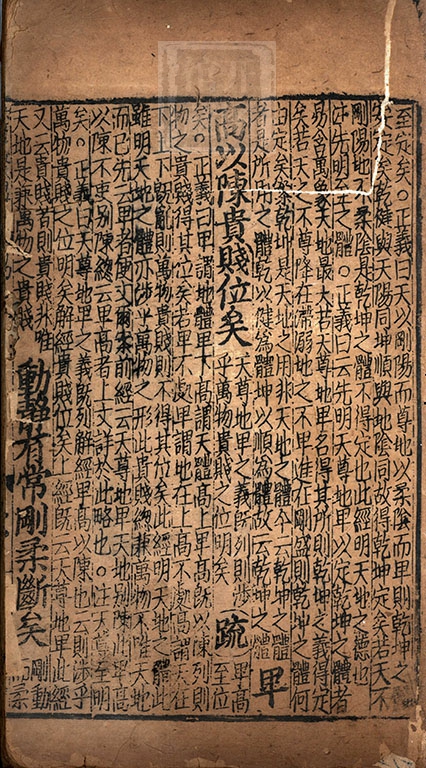 至定矣。正義曰天以剛陽而尊地以柔陰而卑則乾坤之
安定矣乾健與天陽同坤順與地陰同故得乾坤定矣若天不
剛陽地不柔陰是乾坤之體不得定也此經明天地之德也
注先明至之體。正義曰云先明天尊地卑以定乾坤之體者
易含萬象天地最大若天尊地卑各得其所則乾坤之義得定
矣若天之不尊降在滯溺地之不卑進在剛盛則乾坤之體何
由定矣案乾坤是天地之用非天地之體今云乾坤之體
者是所用之體乾以健為體坤以順為體故云乾坤之體
卑
高以陳貴賤位矣
天尊地卑之義既列則涉
乎萬物貴賤之位明矣
疏
卑高
至位
矣。正義曰卑謂地體卑下高謂天體高上卑高既以陳列則
物之貴賤得其位矣若卑不處卑謂地在上高不處高謂天在
下上下既亂則萬物貴賤則不得其位矣此經明天地之體此
雖明天地之體亦涉乎萬物之形此貴賤總兼萬物不唯天地
而已先云卑者便文爾案前經云天尊地卑天地別陳此卑高
以陳不更別陳總云卑高者上文詳於此略也。注天尊至明
矣。正義曰天尊地卑之義既列解經卑高以陳也云則涉乎
萬物貴賤之位明矣解經貴賤位矣上經既云天尊地卑此經
又云貴賤者則貴賤非唯
天地是兼萬物之貴賤
動靜有常剛柔斷矣
剛動